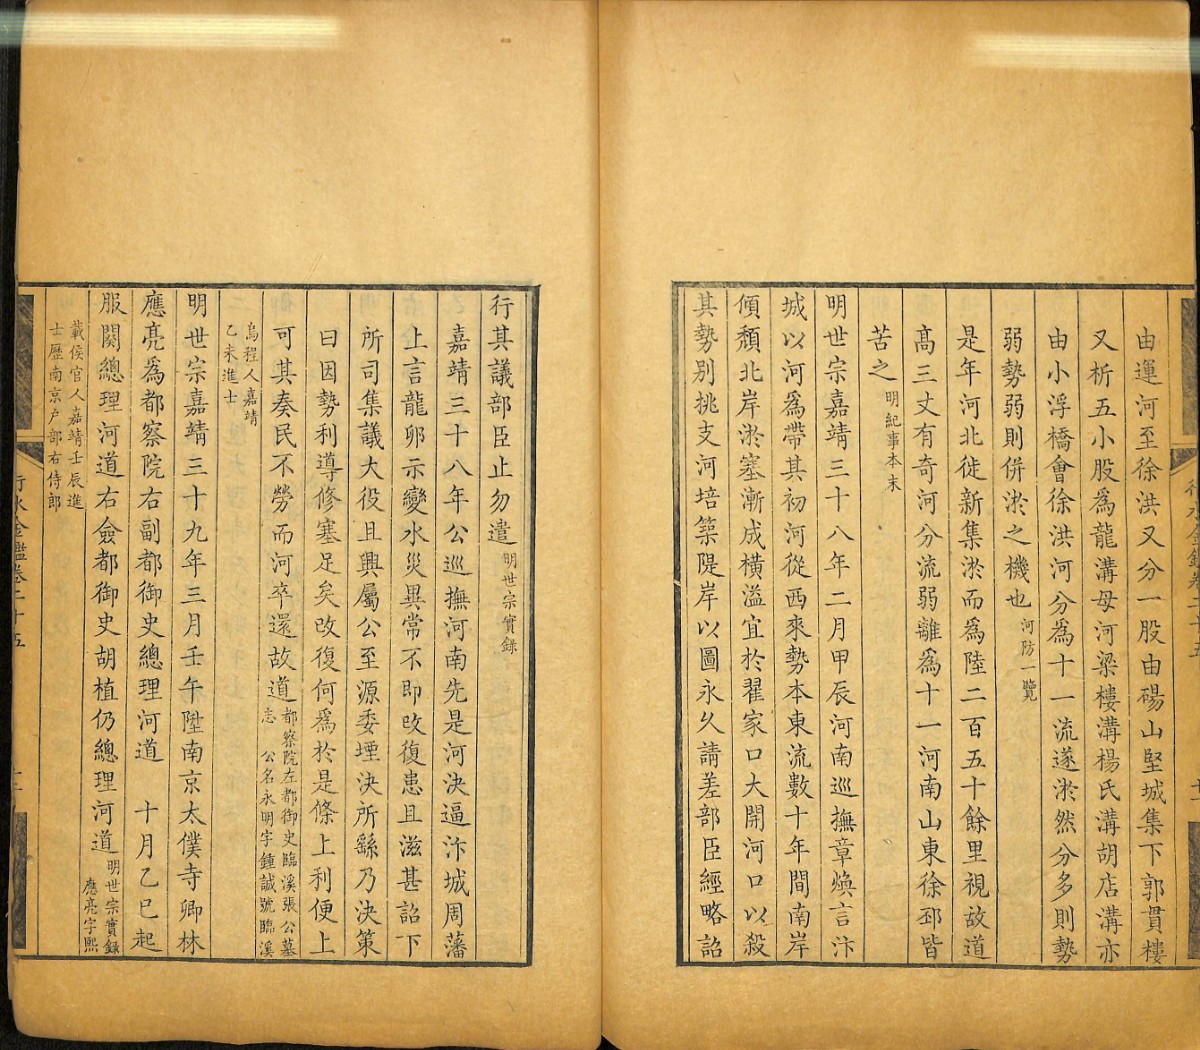 由運河至徐洪又分一股由碭山堅城集下郭貫樓
又析五小股為龍溝母河梁樓溝楊氏溝胡店溝亦
由小浮橋會徐洪河分為十一流遂淤然分多則勢
弱勢弱則併淤之機也河防一覽
是年河北徙新集淤而為陸二百五十餘里視故道
高三丈有奇河分流弱離為十一河南山東徐邳皆
苦之明紀事本末
明世宗嘉靖三十八年二月甲辰河南巡撫章煥言汴
城以河為帶其初河從西來勢本東流數十年間南岸
傾頹北岸淤塞漸成橫溢宜於翟家口大開河口以殺
其勢別挑支河培築隄岸以圖永久請差部臣經略詔
行其議部臣止勿遣明世宗實錄
嘉靖三十八年公巡撫河南先是河決逼汴城周藩
上言龍卵示變水災異常不即改復患且滋甚詔下
所司集議大役且興屬公至源委堙決所繇乃決策
曰因勢利導修塞足矣改復何為於是條上利便上
可其奏民不勞而河卒還故道都察院左都御史臨溪張公墓
志　公名永明字鍾誠號臨溪
烏程人嘉靖
乙未進士
明世宗嘉靖三十九年三月壬午陞南京太僕寺卿林
應亮為都察院右副都御史總理河道　十月乙巳起
服闋總理河道右僉都御史胡植仍總理河道明世宗實錄
應亮字熙
載侯官人嘉靖壬辰進
士歷南京戶部右侍郎
行水金鑑卷二十五